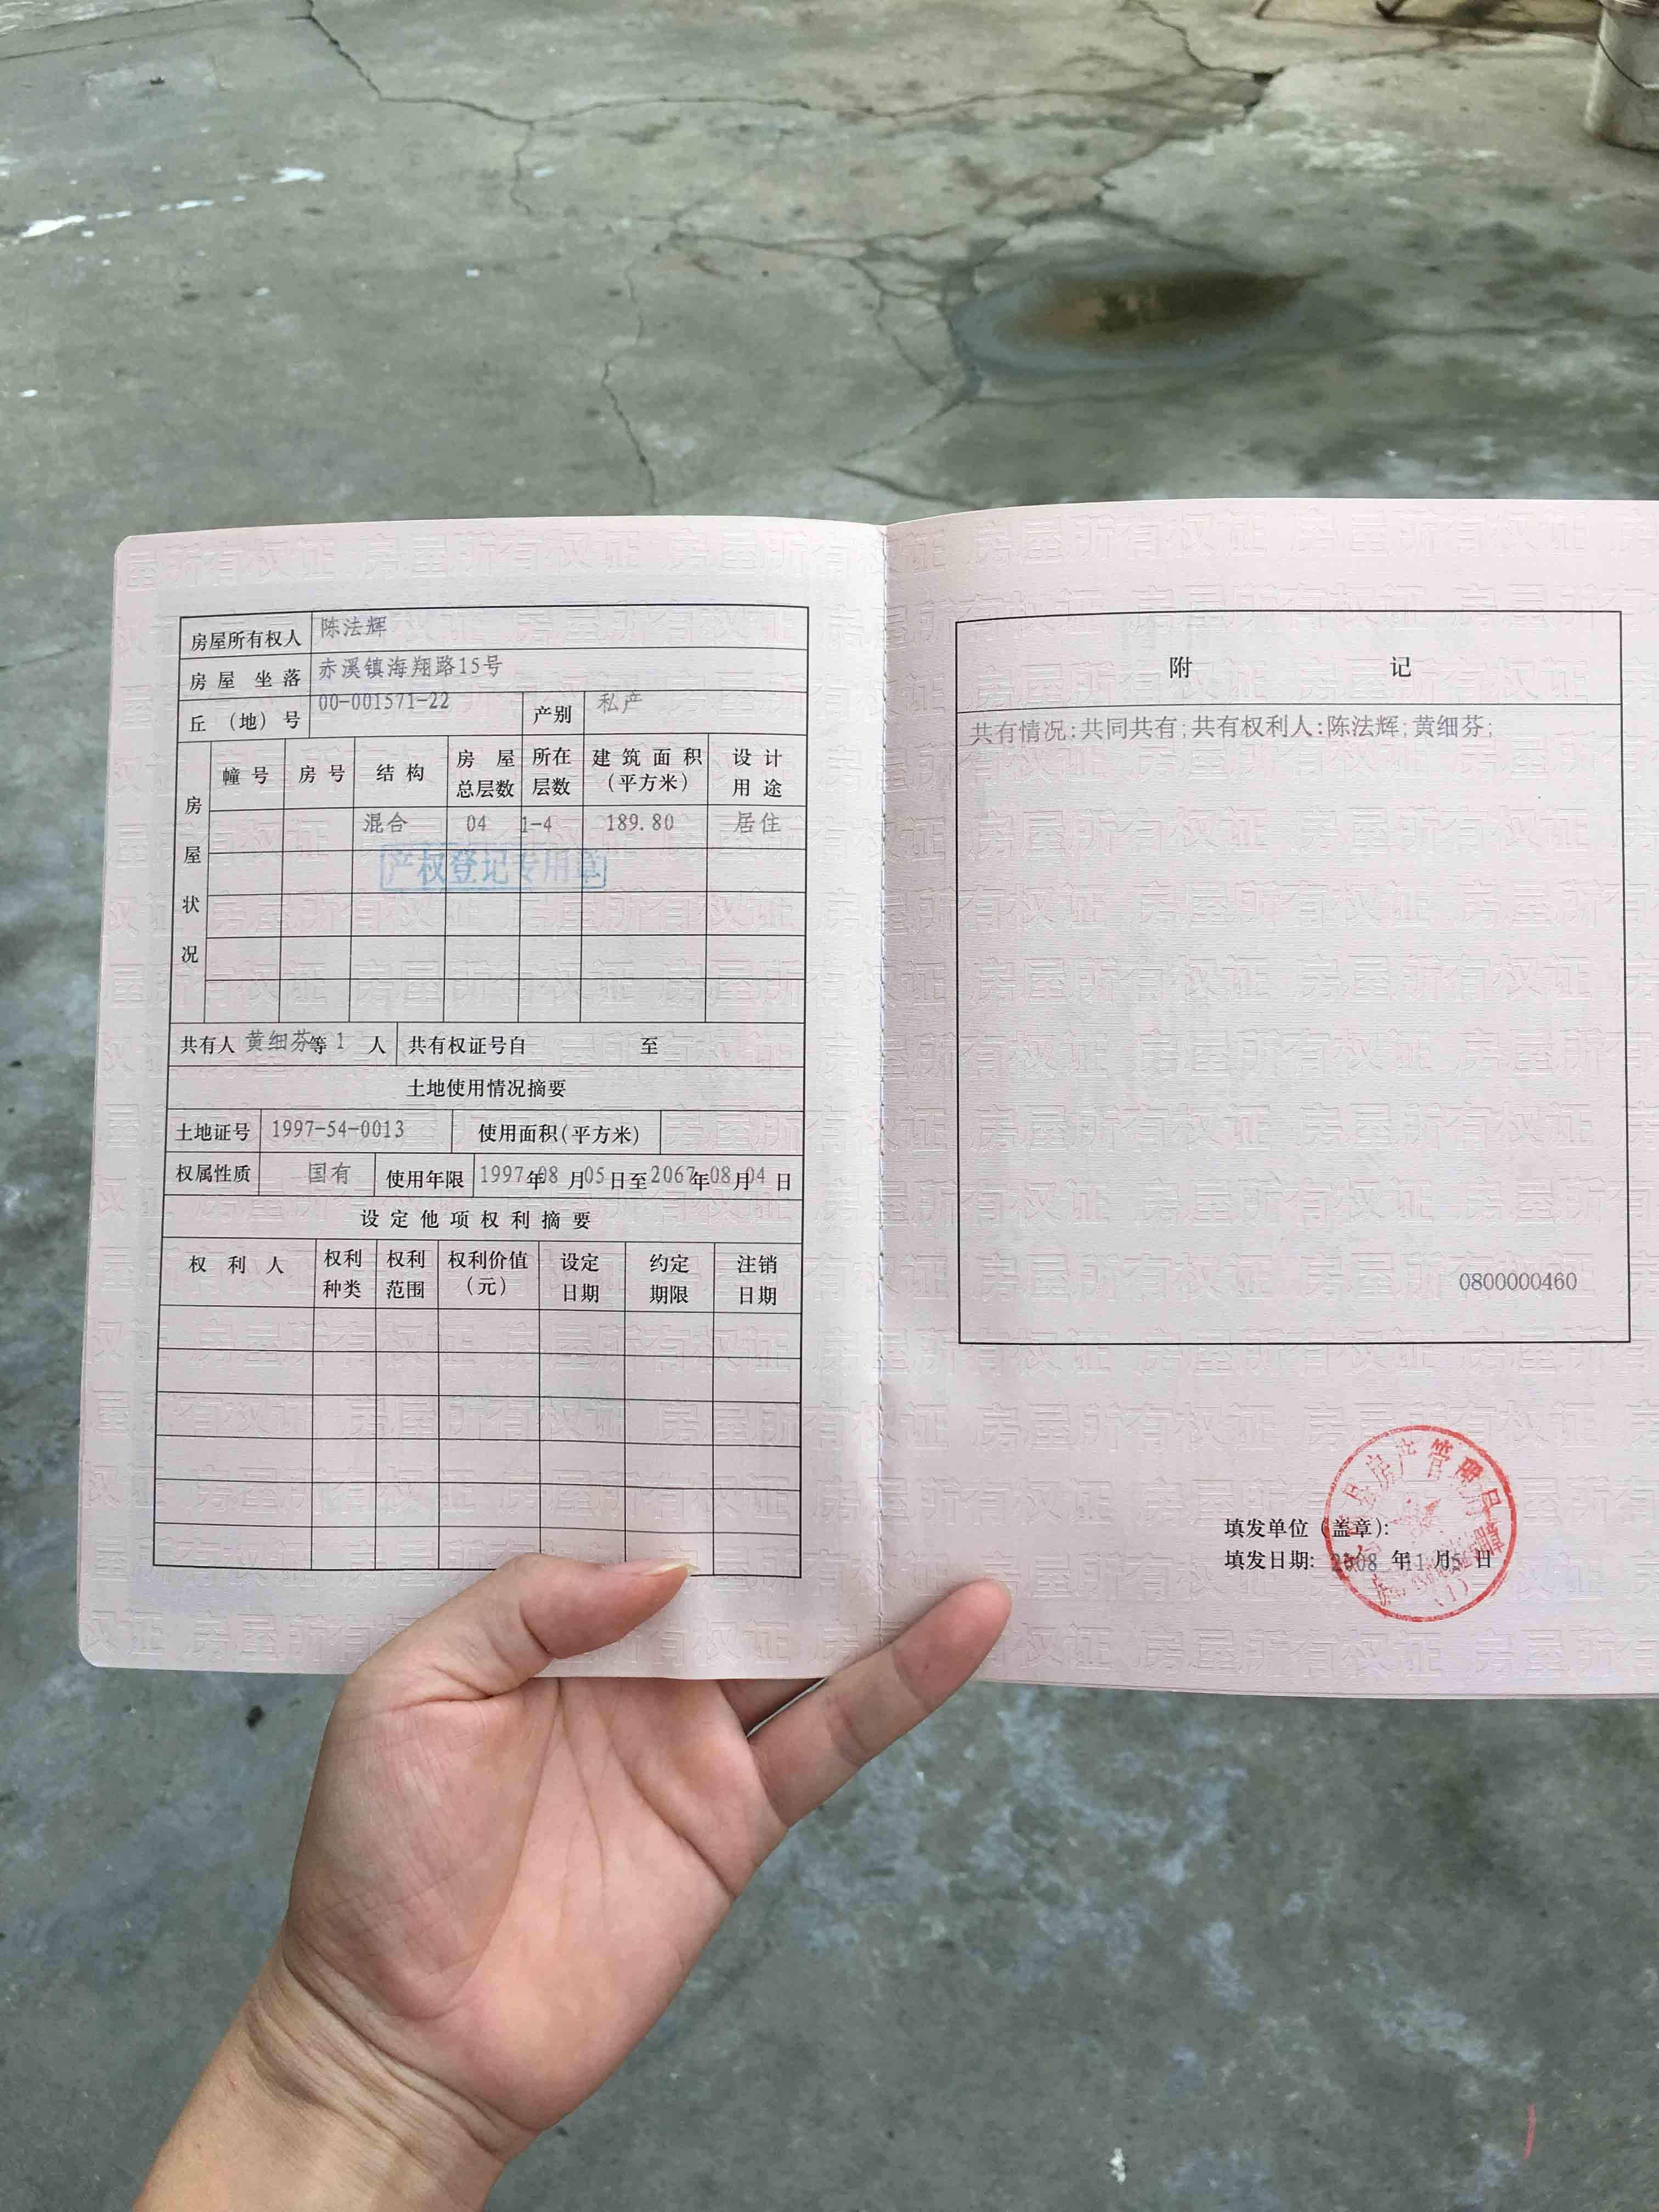 房屋所有权人 陈法辉
房屋坐落 赤溪镇海翔路15号
丘（地）号 00-001571-22 产别 私产
房屋状况
幢号 房号 结构 房屋总层数 所在层数 建筑面积（平方米） 设计用途
混合 04 1-4 189.80 居住
产权登记专用章
共有人 黄细芬等 1 人 共有权证号自 至
土地使用情况摘要
土地证号 1997-54-0013 使用面积(平方米)
权属性质 国有 使用年限 1997年08月05日至2067年08月04日
设定他项权利摘要
权利人 权利种类 权利范围 权利价值（元） 设定日期 约定期限 注销日期
附记
共有情况:共同共有;共有权利人:陈法辉;黄细芬;
0800000460
填发单位（盖章）:
填发日期: 2008 年11月05日
县房产管理局
(1)
房屋所有权证